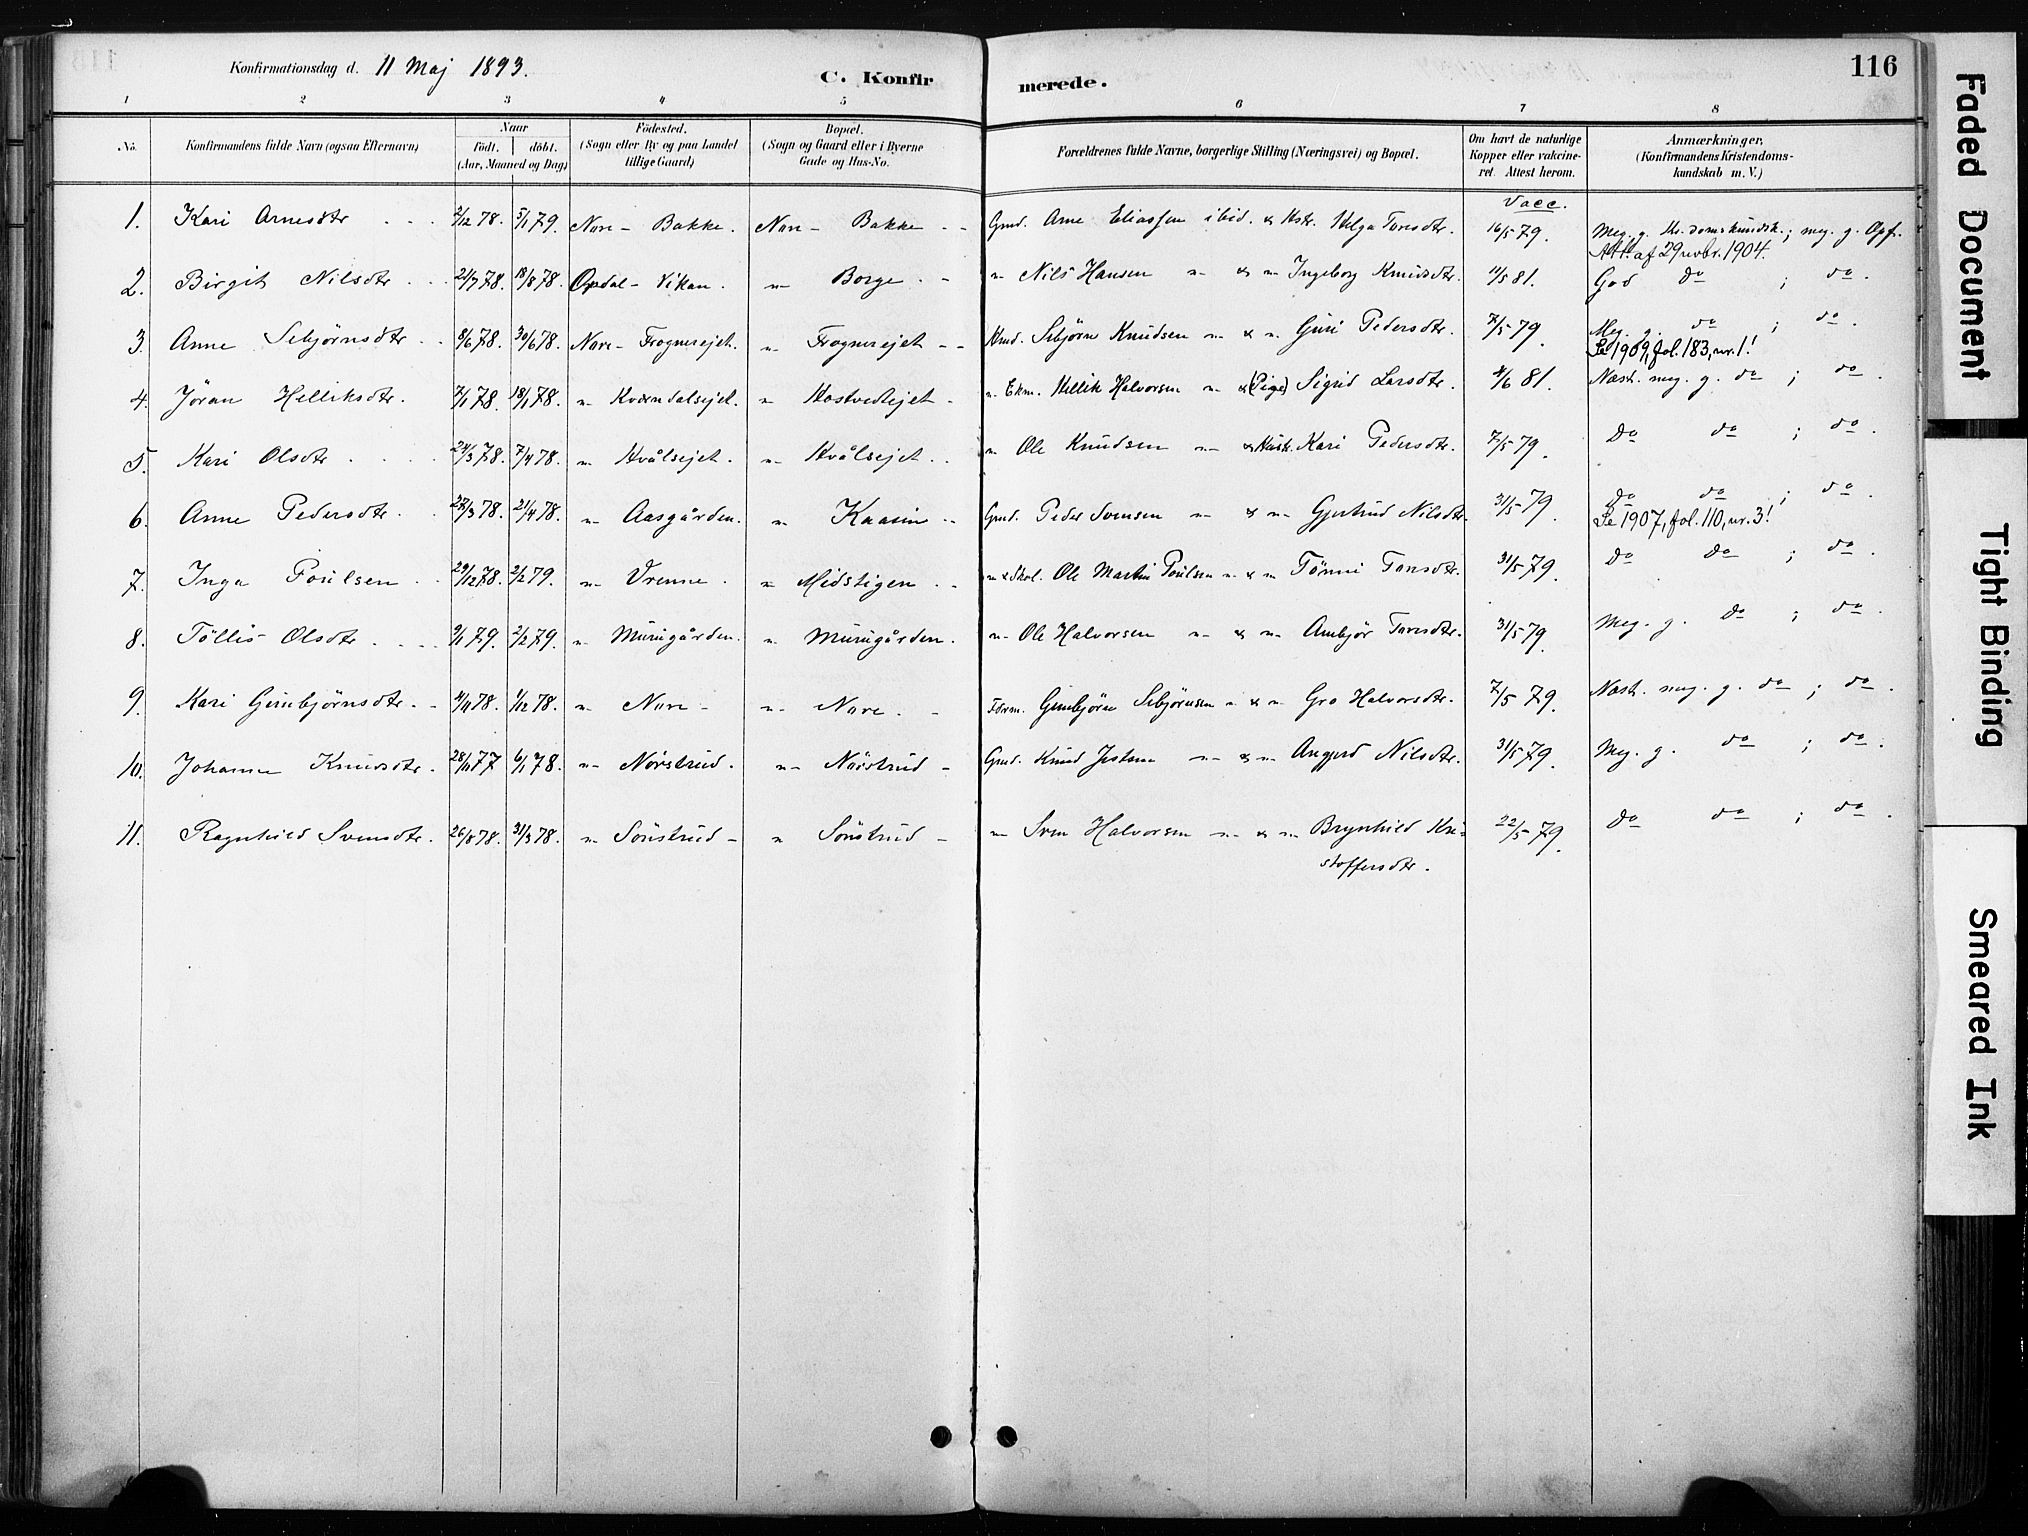 Konfirmationsdag d. 11 Maj 1893.
C. Konfirmerede.
116
1 2 3 4 5 6 7 8
No.
Konfirmandens fulde Navn (ogsaa Efternavn)
Naar
födt. döbt.
(Aar, Maaned og Dag)
Födested.
(Sogn eller By og paa Landet
tillige Gaard)
Bopæl.
(Sogn og Gaard eller i Byerne
Gade og Hus-No.
Forældrenes fulde Navne, borgerlige Stilling (Næringsvei) og Bopæl.
Om havt de naturlige
Kopper eller vakcine-
ret. Attest herom.
Anmærkninger,
(Konfirmandens Kristendoms-
kundskab m. V.)
Vacc.
1. Kari Arnesdtr 2/12 78. 5/1 79. Nore - Bakke. Nore - Bakke Grmd. Arne Eliassen ibid. & Hstr. Helga Toresdtr. 16/5 79. Meg. g. Kr.domskundsk.; meg. g. Opf.
Att. af 29 novbr. 1904.
2. Birgit Nilsdtr 21/7 78. 18/8 78. Opdal - Vikan. " Borge " Nils Hansen " & " Ingeborg Knudsdtr. 11/5 81. God do ; do.
3. Anne Sebjørnsdtr 8/6 78. 30/6 78. Nore - Frognerejet. " Frognerejet Hmd. Sebjørn Knudsen " & " Guri Pedersdtr. 7/5 79. Meg. g. do ; do.
Se 1909, fol. 183, nr. 1!
4. Jöran Helliksdtr. 7/1 78. 18/1 78. " Kværndalsejet. " Hostvedtejet " Ekm. Hellik Halvorsen " & (Pige) Sigrid Larsdtr. 4/6 81. Næst. meg. g. do ; do.
5. Kari Olsdtr 24/3 78. 7/4 78. " Hvålsejet. " Hvålsejet " Ole Knudsen " & Hustr. Kari Pedersdtr. 7/5 79. Do do ; do.
6. Anne Pedersdtr. 27/3 78. 21/4 78. " Aasgården. " Kaasin Grmd. Peder Svensen " & " Gjertrud Nilsdtr. 31/5 79. do do ; do.
Se 1907, fol. 110, nr. 3!
7. Inga Poulsen 29/12 78. 2/2 79. " Vrenne. " Midstigen " & Skol. Ole Martin Poulsen " & " Tönni Toresdtr. 31/5 79. Do do ; do.
8. Töllis Olsdtr 9/1 79. 2/2 79. " Murugården. " Murugården. " Ole Halvorsen " & " Ambjör Toresdtr. 31/5 79. Meg. g. do ; do.
9. Kari Gunbjørnsdtr. 4/11 78. 1/12 78. " Nore " Nore. Gunbjørn Sebjørnsen " & " Gro Halvorsdtr. 7/5 79. Næst. meg. g. do ; do.
10. Johanne Knudsdtr. 28/11 77 6/1 78. " Nörstrud. " Nörstrud Grmd. Knud Jestsen " & " Angjerd Nilsdtr. 31/5 79. Meg. g. do ; do.
11. Ragnhild Svensdtr. 26/8 78. 31/3 78. " Sönstrud " Sönstrud " Sven Halvorsen " & " Brynhild Kri-
stoffersdtr. 22/5 79. Do do ; do.
Faded Document
Tight Binding
Smeared Ink